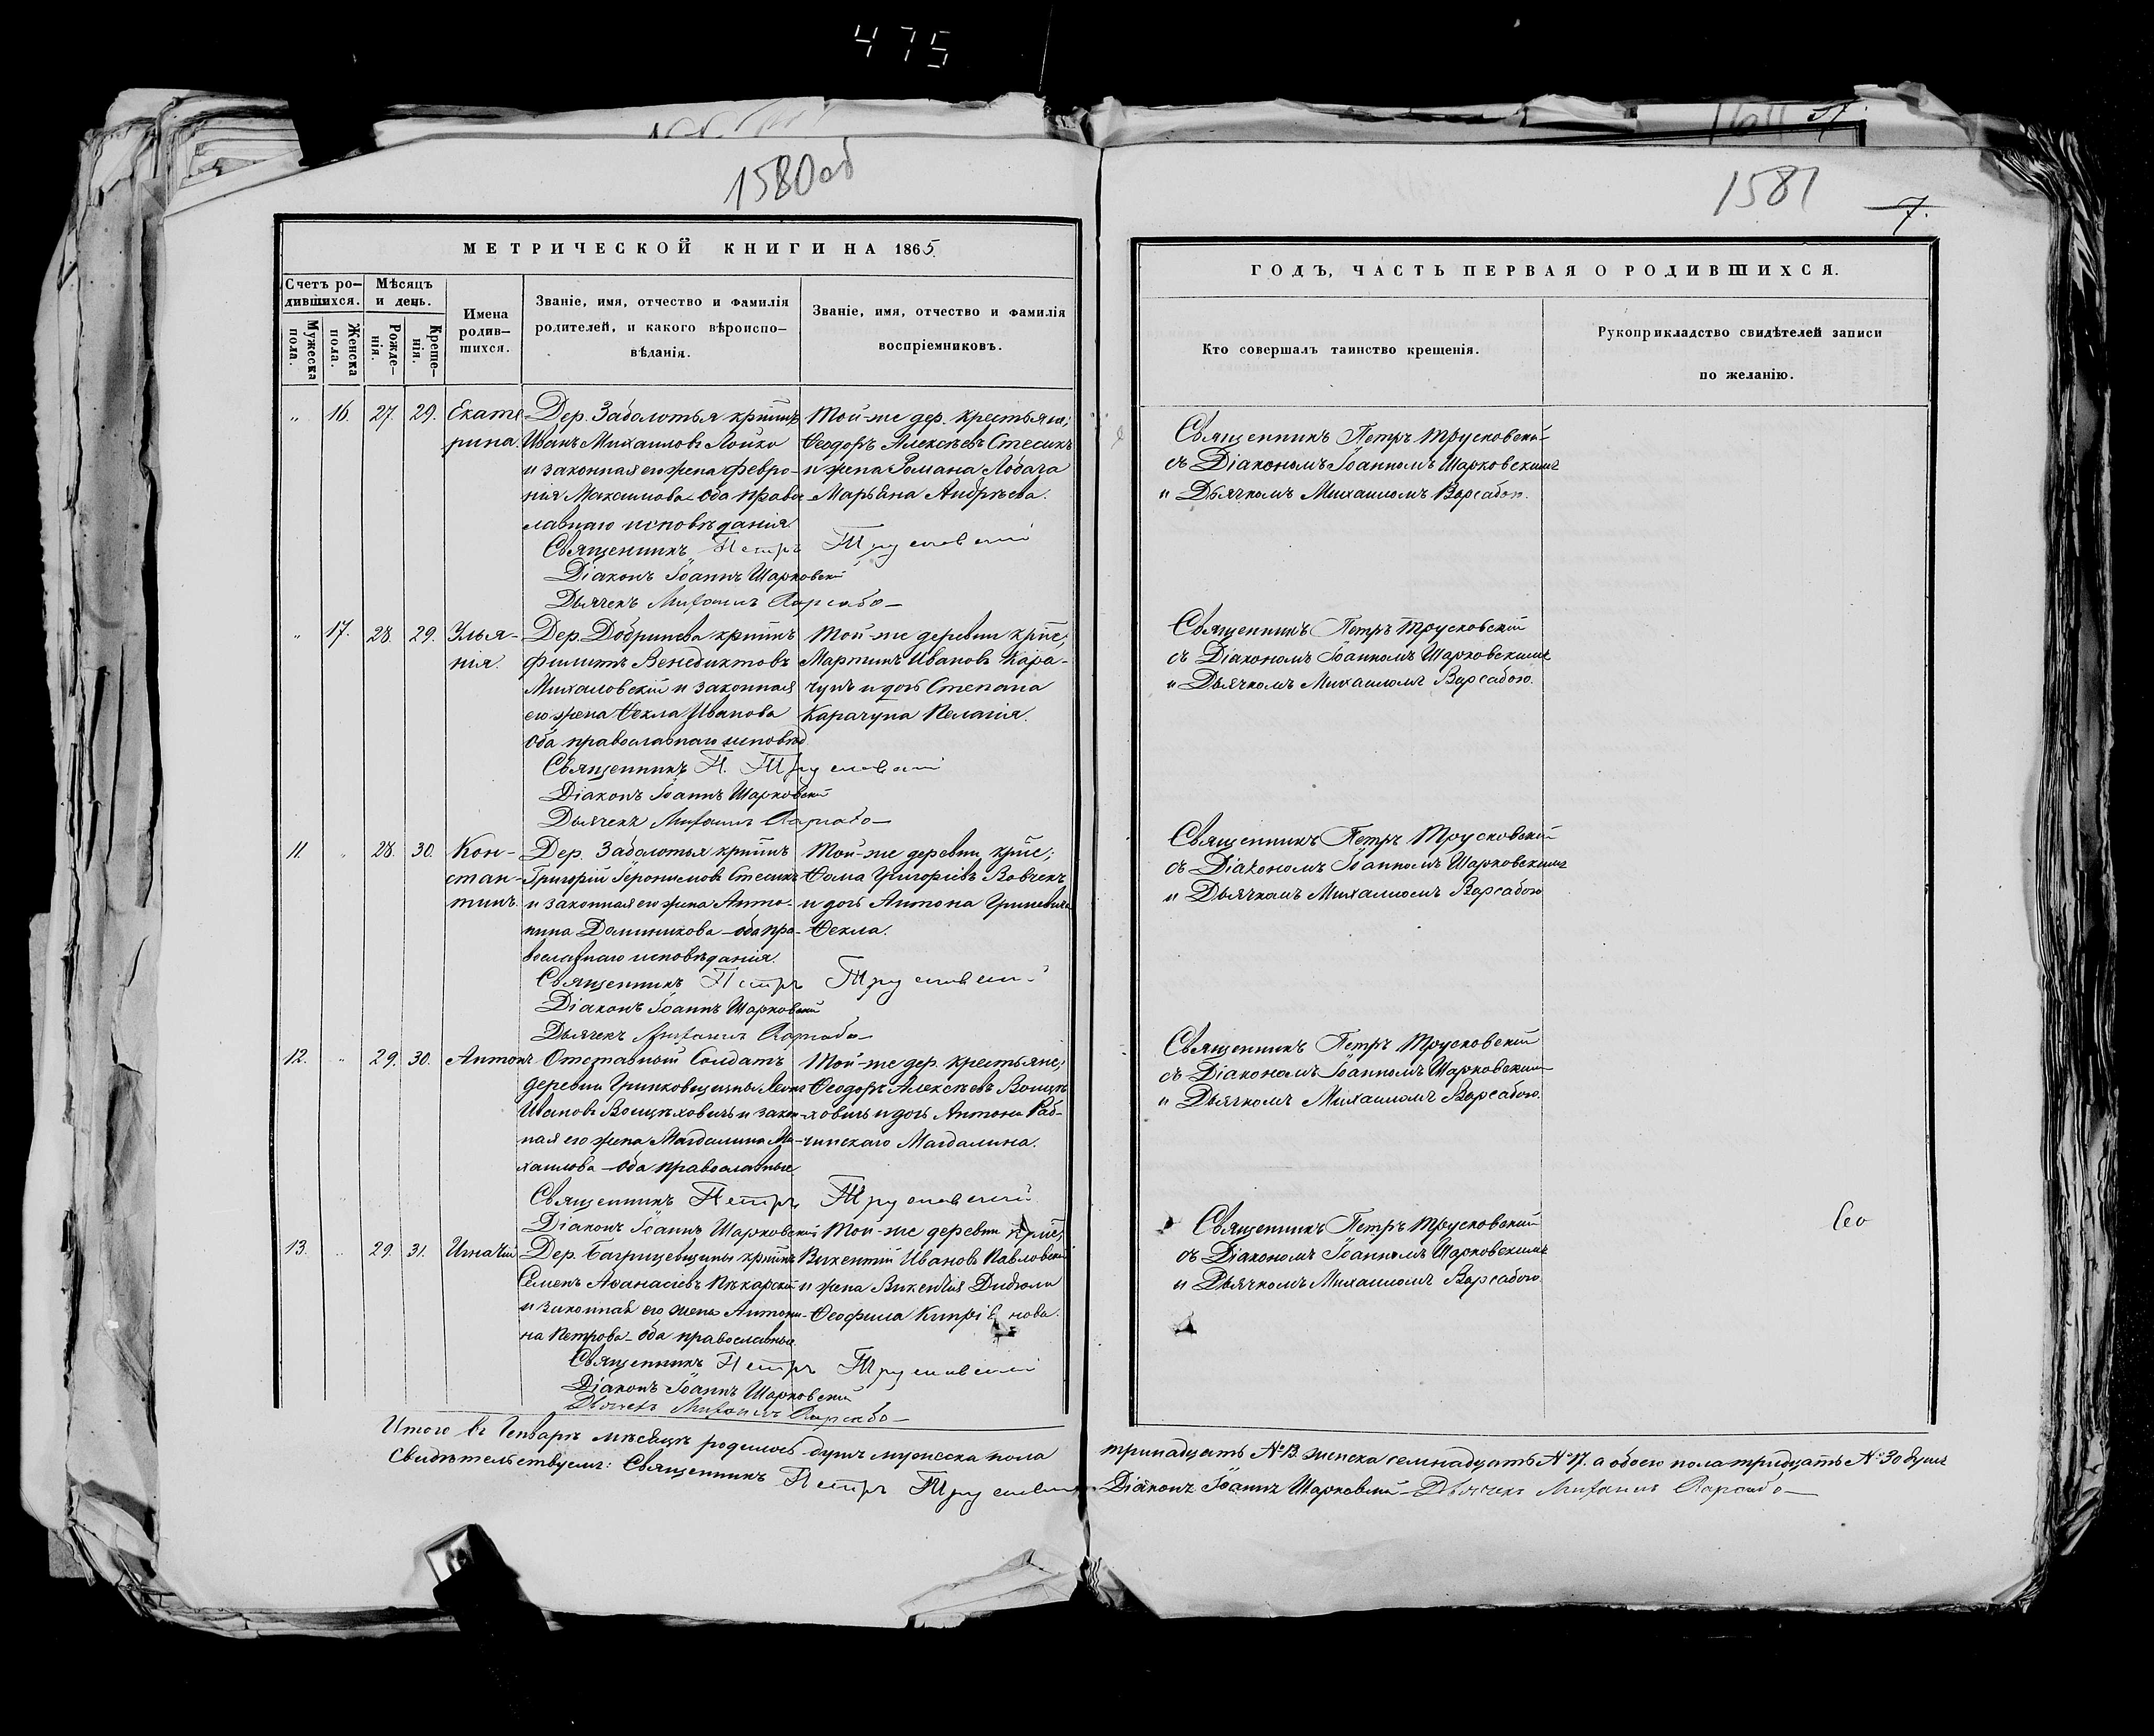 475
1580об
МЕТРИЧЕСКОЙ КНИГИ НА 1865.
Счетъ ро-
дившихся.
Мужеска пола.
Женска пола.
Мѣсяцъ
и день.
Рожде-
нія.
Креще-
нія.
Имена
родив-
шихся.
Званіе, имя, отчество и фамилія
родителей, и какого вѣроиспо-
вѣданія.
Званіе, имя, отчество и фамилія
воспріемниковъ.
" 16. 27. 29. Екате-
рина.
Дер. Заболотья
Иванъ Михаиловъ Лойко
и законная его жена Февро-
нія Максимова оба право
славнаго исповѣданія.
Той-же дер. крестьяне;
Ѳеодоръ Алексѣевъ Стесикъ
и жена Романа Лобача
Марьяна Андрѣева.
Священникъ Петръ Трусковскій
Діаконъ Іоаннъ Шарковскій
Дьячекъ Михаилъ Варсабо
" 17. 28. 29. Улья-
нія.
Дер. Добринева
Филипъ Венедиктовъ
Михаловскій и законная
его жена Ѳекла Иванова
оба православнаго исповѣд
Той-же деревни
Мартинъ Ивановъ Кара-
чунъ и дочь Степана
Карачуна Пелагія.
Священникъ П. Трусковскій
Діаконъ Іоаннъ Шарковскій
Дьячекъ Михаилъ Варсабо
11. " 28. 30. Кон-
стан-
тинъ
Дер. Заболотья
Григорій Іеронимовъ Стесикъ
и законная его жена Анто-
нина Доминикова оба пра-
вославнаго исповѣданія.
Той-же деревни
Ѳома Григоріевъ Вовчекъ
и дочь Антона Гриневича
Ѳекла.
Священникъ Петръ Трусковскій
Діаконъ Іоаннъ Шарковскій
Дьячекъ Михаилъ Варсабо
12. " 29. 30. Антонъ
Отставный Солдатъ
деревни Гринковщизны
Ивановъ Войцѣховичъ и закон-
ная его жена Магдалина Ми-
хаилова оба православные
Той-же дер. крестьяне;
Ѳеодоръ Алексѣевъ Войцѣ-
ховичъ и дочь Антона Раб-
чинскаго Магдалина.
Священникъ Петръ Трусковскій
Діаконъ Іоаннъ Шарковскій
13. " 29. 31. Игнатій
Дер. Багрицевщины
Семенъ Аѳанасіевъ Пѣкарскій
и законная его жена Антони-
на Петрова оба православные
Той-же деревни
Викентій Ивановъ Павловскій
и жена Викентія Дидюли
Ѳеофила Кипріянова.
Священникъ Петръ Трусковскій
Діаконъ Іоаннъ Шарковскій
Дьячекъ Михаилъ Варсабо
Итого въ Генварѣ мѣсяцѣ родилось душъ мужеска пола
Свидѣтельствуемъ: Священникъ Петръ Трусковскій
1581
7.
ГОДЪ, ЧАСТЬ ПЕРВАЯ О РОДИВШИХСЯ.
Кто совершалъ таинство крещенія.
Рукоприкладство свидѣтелей записи
по желанію.
Священникъ Петръ Трусковскій
съ Діакономъ Іоанномъ Шарковскимъ
и Дьячкомъ Михаиломъ Варсабою.
Священникъ Петръ Трусковскій
съ Діакономъ Іоанномъ Шарковскимъ
и Дьячкомъ Михаиломъ Варсабою.
Священникъ Петръ Трусковскій
съ Діакономъ Іоанномъ Шарковскимъ
и Дьячкомъ Михаиломъ Варсабою
Священникъ Петръ Трусковскій
съ Діакономъ Іоанномъ Шарковскимъ
и Дьячкомъ Михаиломъ Варсабою.
Священникъ Петръ Трусковскій
съ Діакономъ Іоанномъ Шарковскимъ
и Дьячкомъ Михаиломъ Варсабою.
тринадцать №13. женска семнадцать №17. а обоего пола тридцать №30 душъ
Діаконъ Іоаннъ Шарковскій Дьячекъ Михаилъ Варсабо